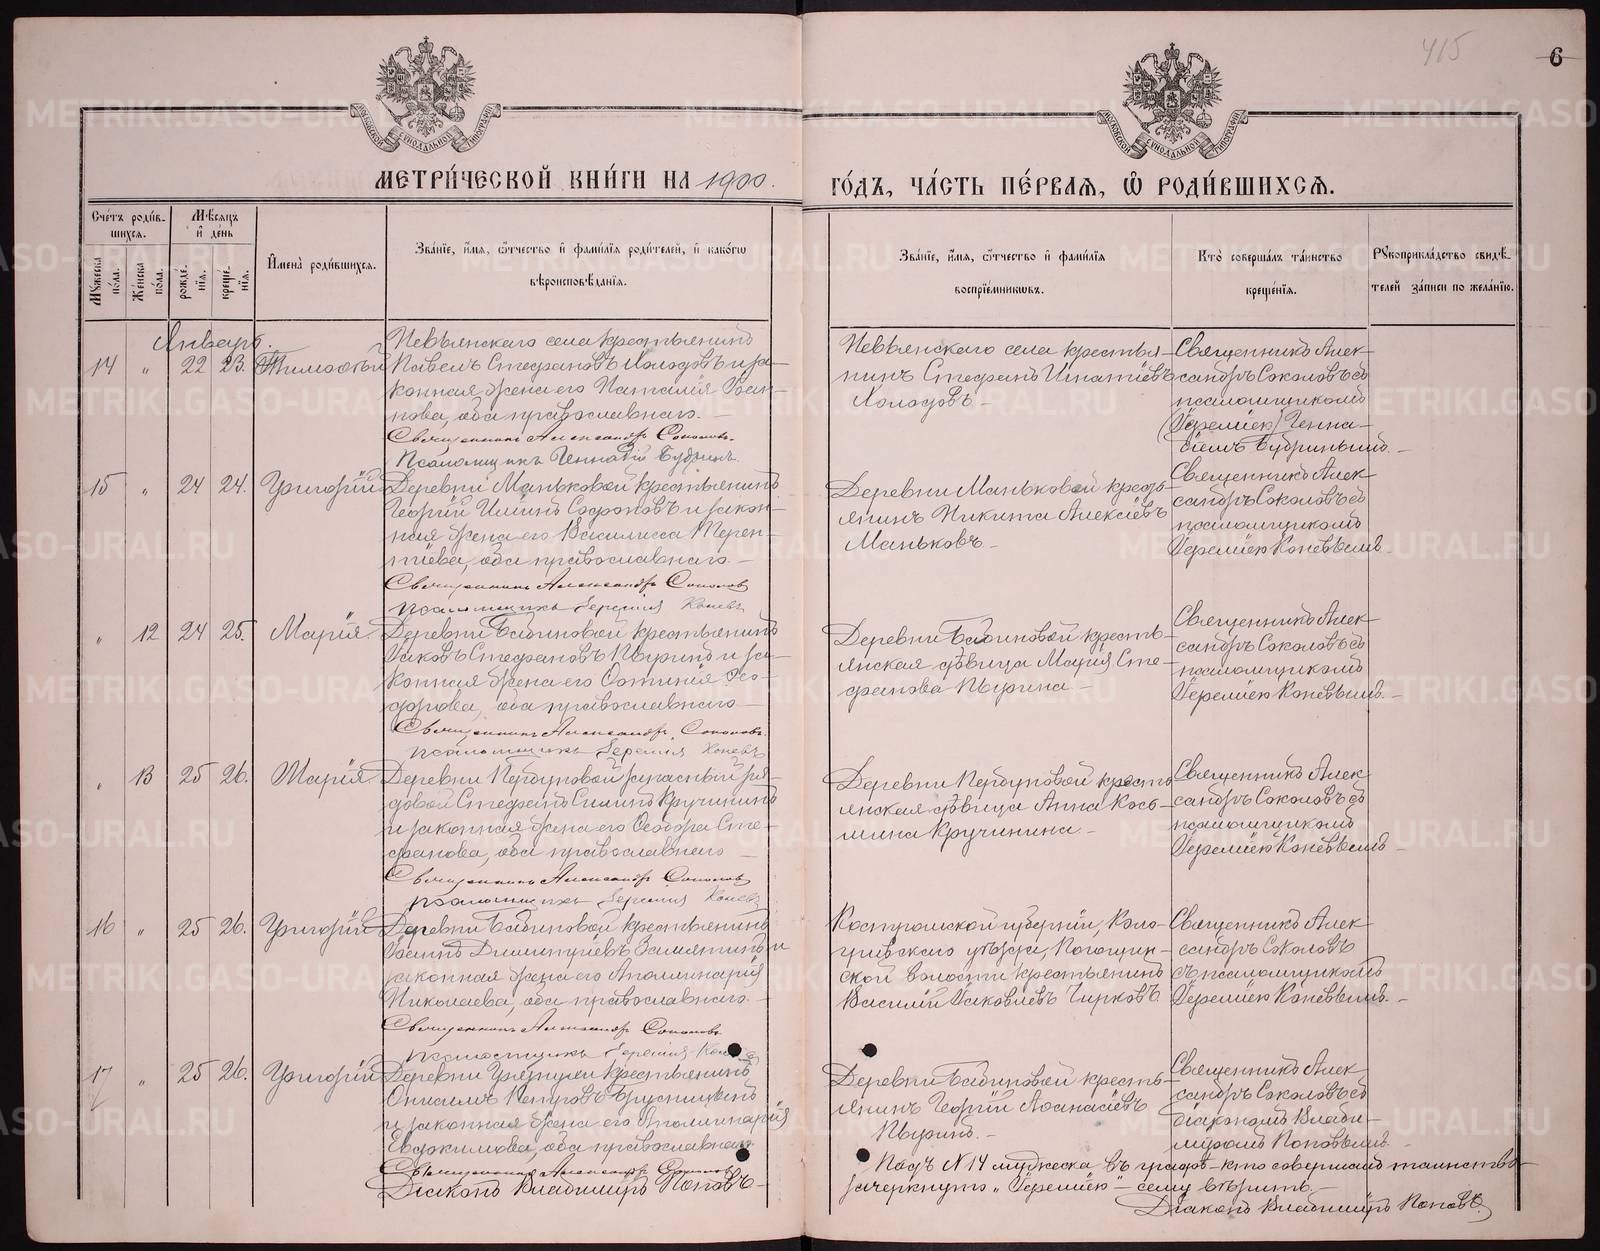 415
6
МЕТРИ́ЧЕСКОЙ КНИ́ГИ НА 1900.
ГО́ДЪ, ЧА́СТЬ ПЕ́РВАѦ, Ѡ҆ РОДИ́ВШИХСѦ.
Сче́тъ роди́вшихсѧ.
Мѣ́сѧцъ и҆ де́нь
И҆мена̀ роди́вшихсѧ.
Зва́нїе, и҆́мѧ, ѻ҆́тчество и҆ фами́лїѧ роди́телей, и҆ како́гѡ
вѣроисповѣ́данїѧ.
Зва́нїе, и҆́мѧ, ѻ҆́тчество и҆ фами́лїѧ
воспрїе́мникѡвъ.
Кто̀ соверша́лъ та́инство
креще́нїѧ.
Рꙋкоприкла́дство свидѣ́-
телей за́писи по жела́нїю.
Мꙋ́жеска по́ла.
Же́нска по́ла.
рожде́нїѧ.
креще́нїѧ.
Январь.
14 " 22 23. Тимофей
Невьянскаго села крестьянинъ
Павелъ Стефановъ Холодовъ и за-
конная жена его Наталія Іоан-
нова, оба православнаго.
Священникъ Александръ Соколовъ.
Псаломщикъ Геннадій Будринъ.
Невьянскаго села крестья-
нинъ Стефанъ Игнатіевъ
Холодовъ -
Священникъ Алек-
сандръ Соколовъ съ
псаломщикомъ
(Іереміею) Генна-
діемъ Будринымъ. -
15 " 24 24. Григорій
Деревни Маньковой крестьянинъ
Георгій Ильинъ Софоновъ и закон-
ная жена его Василисса Терен-
тіева, оба православнаго. -
Священникъ Александръ Соколов
псаломщикъ Іеремія Коневъ
Деревни Маньковой кресть-
янинъ Никита Алексіевъ
Маньковъ -
Священникъ Алек-
сандръ Соколовъ съ
псаломщикомъ
Іереміею Коневымъ. -
" 12 24 25. Марія
Деревни Бабиновой крестьянинъ
Іаковъ Стефановъ Пыринъ и за-
конная жена его Фотинія Ѳео-
дорова, оба православнаго -
Священникъ Александръ Соколовъ.
псаломщикъ Іеремія Коневъ
Деревни Бабиновой кресть-
янская дѣвица Марія Сте-
фанова Пырина -
Священникъ Алек-
сандръ Соколовъ съ
псаломщикомъ
Іереміею Коневымъ. -
" 13 25 26. Марія
Деревни Первуновой запасный ря-
довой Стефанъ Силинъ Кручининъ
и законная жена его Ѳеодора Сте-
фанова, оба православнаго -
Священникъ Александръ Соколов
псаломщикъ Іеремія Коневъ
Деревни Первуновой кресть-
янская дѣвица Анна Козь-
мина Кручинина -
Священникъ Алек-
сандръ Соколовъ съ
псаломщикомъ
Іереміею Коневымъ -
16 " 25 26. Григорій
Деревни Бабиновой крестьянинъ
Іоаннъ Димитріевъ Замятинъ и
законная жена его Аполлинарія
Николаева, оба православнаго. -
Священникъ Александръ Соколовъ
псаломщикъ Іеремія Коневъ
Костромской губерніи, Коло-
гривскаго уѣзда,
ской волости крестьянинъ
Василій Іаковлевъ Чирковъ
Священникъ Алек-
сандръ Соколовъ
съ псаломщикомъ
Іереміею Коневымъ. -
17 " 25 26. Григорій
Деревни Грязнухи крестьянинъ
Онисимъ Петровъ Брусницынъ
и законная жена его Аполлинарія
Евдокимова, оба православнаго
Священникъ Александръ Соколовъ
Діаконъ Владиміръ Поповъ -
Деревни Бабиновой кресть-
янинъ Георгій Аѳанасіевъ
Пыринъ. -
Священникъ Алек-
сандръ Соколовъ съ
діакономъ Влади-
міромъ Поповымъ. -
Подъ N 14 мужеска въ графѣ - кто совершалъ таинство -
зачеркнуто „Іереміею" - сему вѣрить. -
Діаконъ Владиміръ Поповъ.